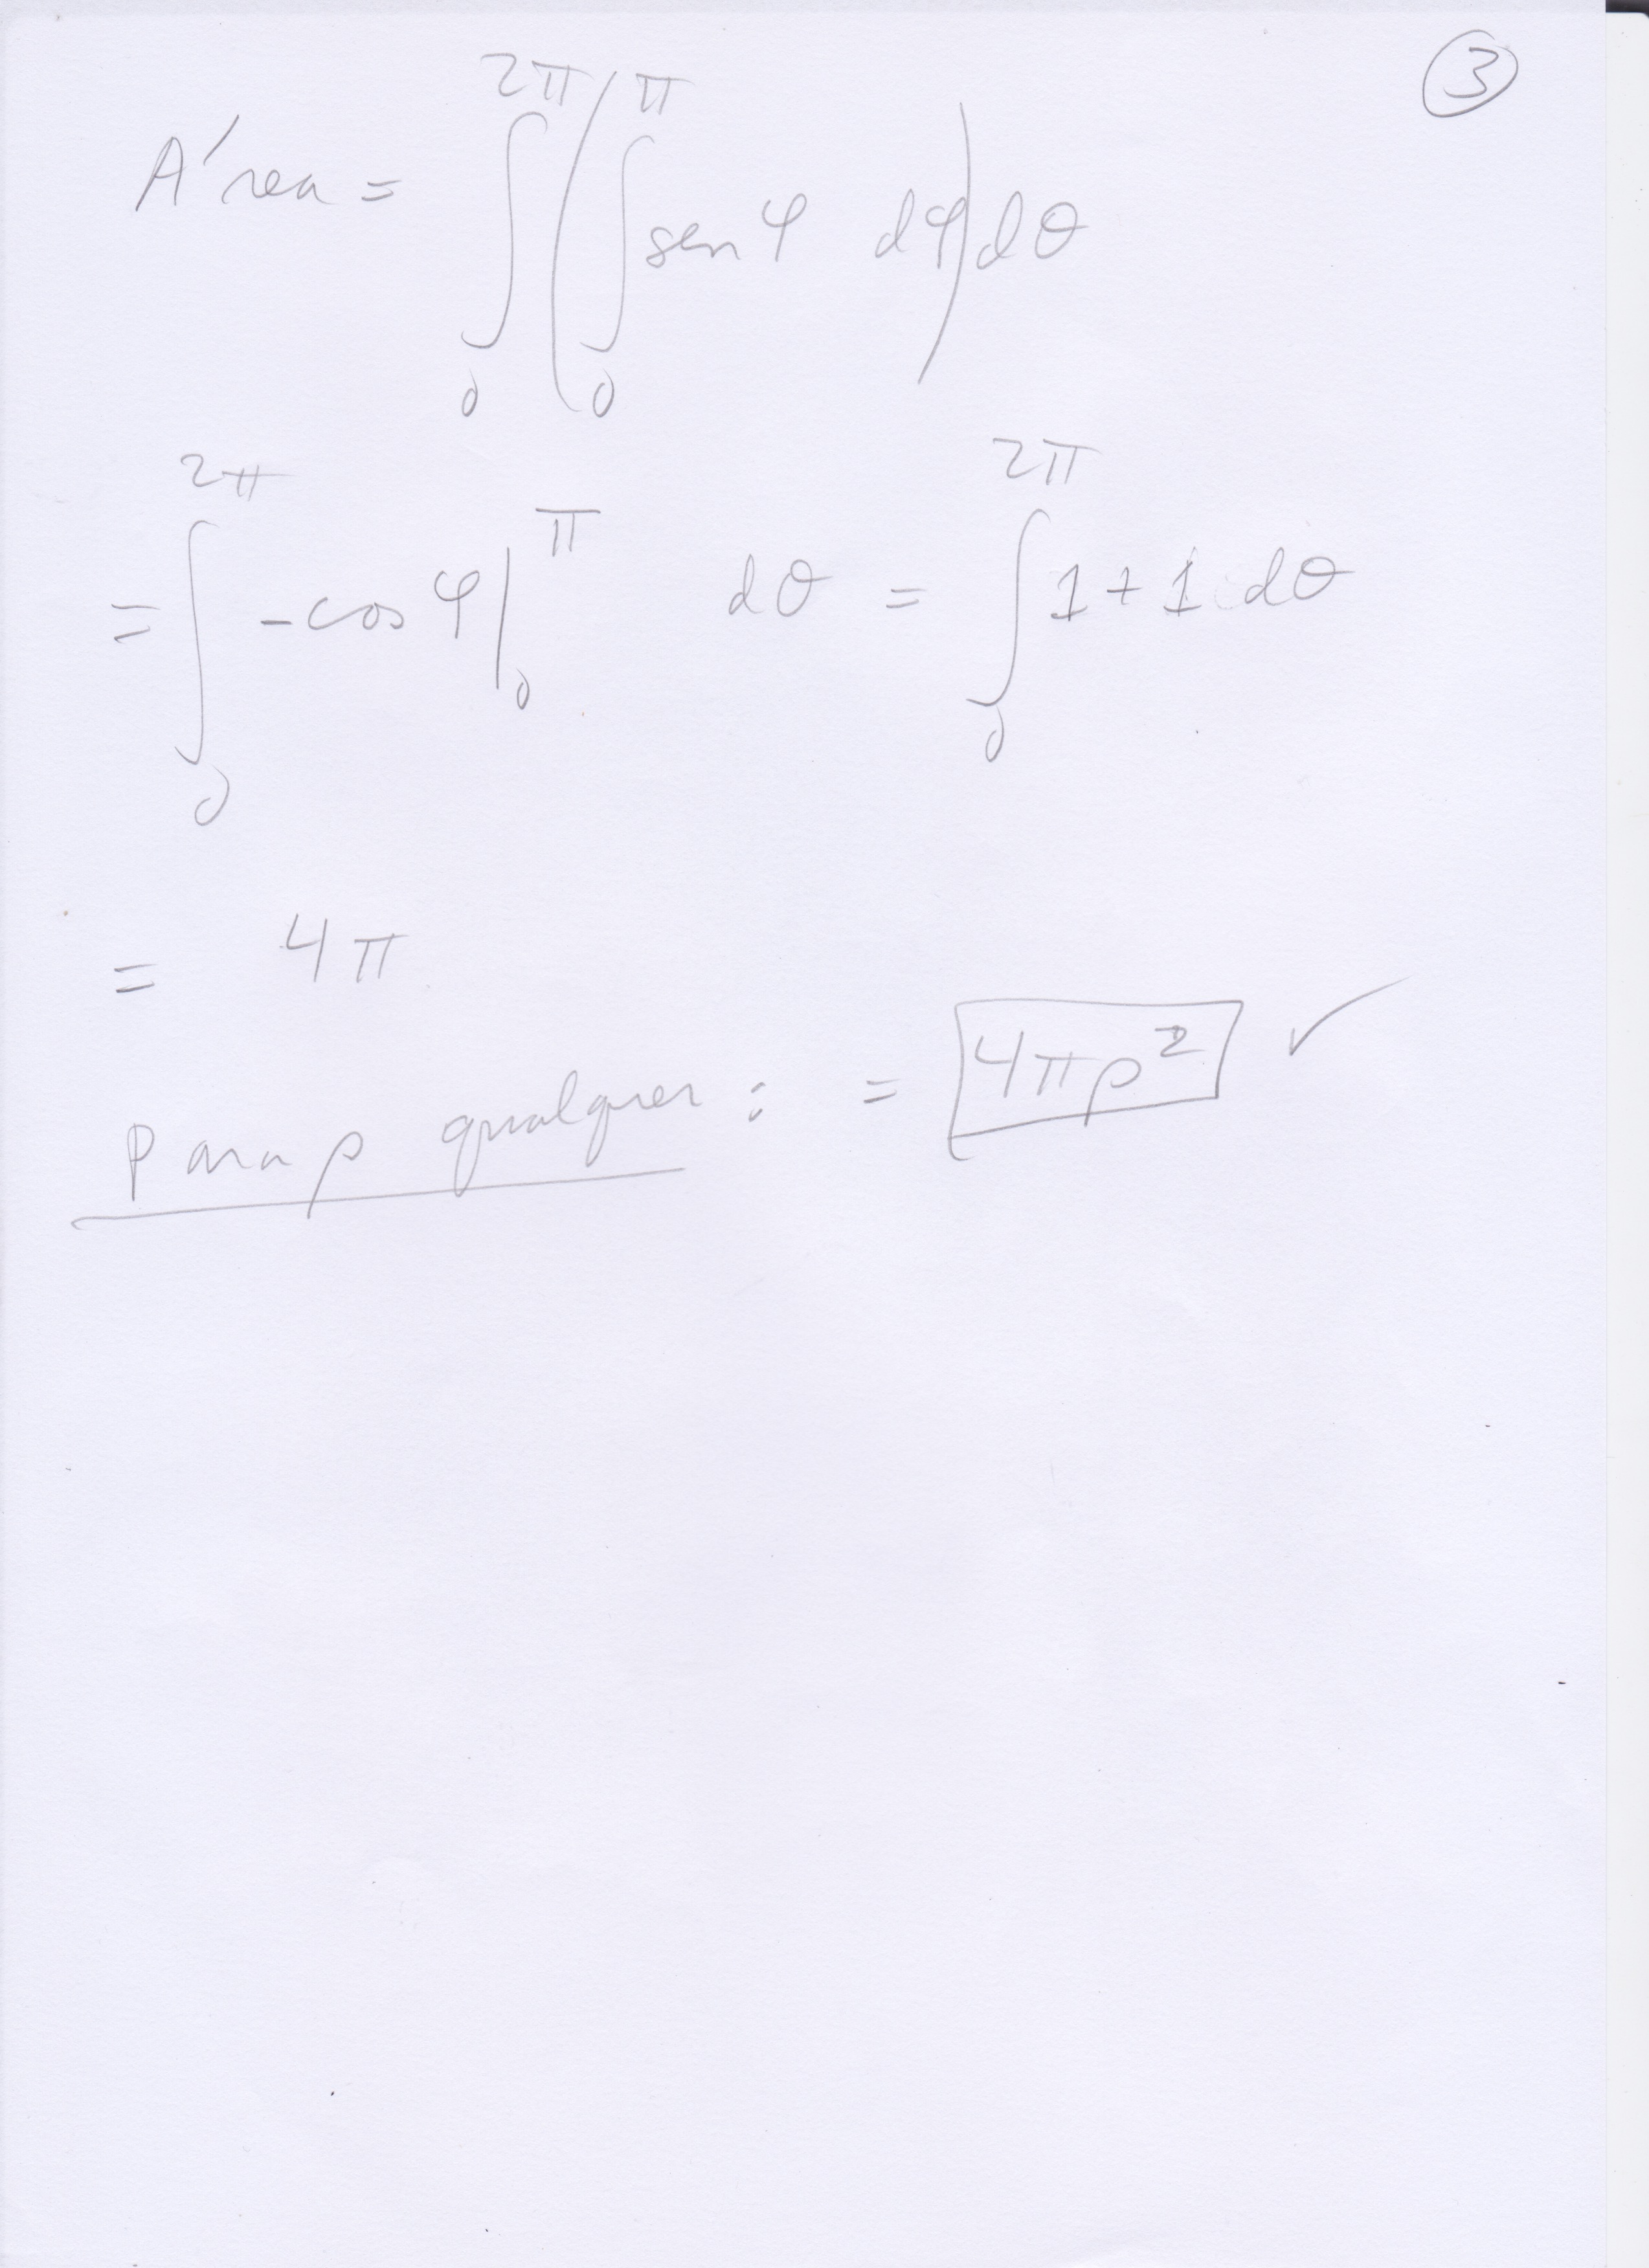 ③
Área = ∫₀^{2π} ( ∫₀^{π} sen φ dφ ) dθ
= ∫₀^{2π} -cos φ |₀^{π} dθ = ∫₀^{2π} 1 + 1 dθ
= 4π
Para ρ qualquer : = 4πρ² ✓